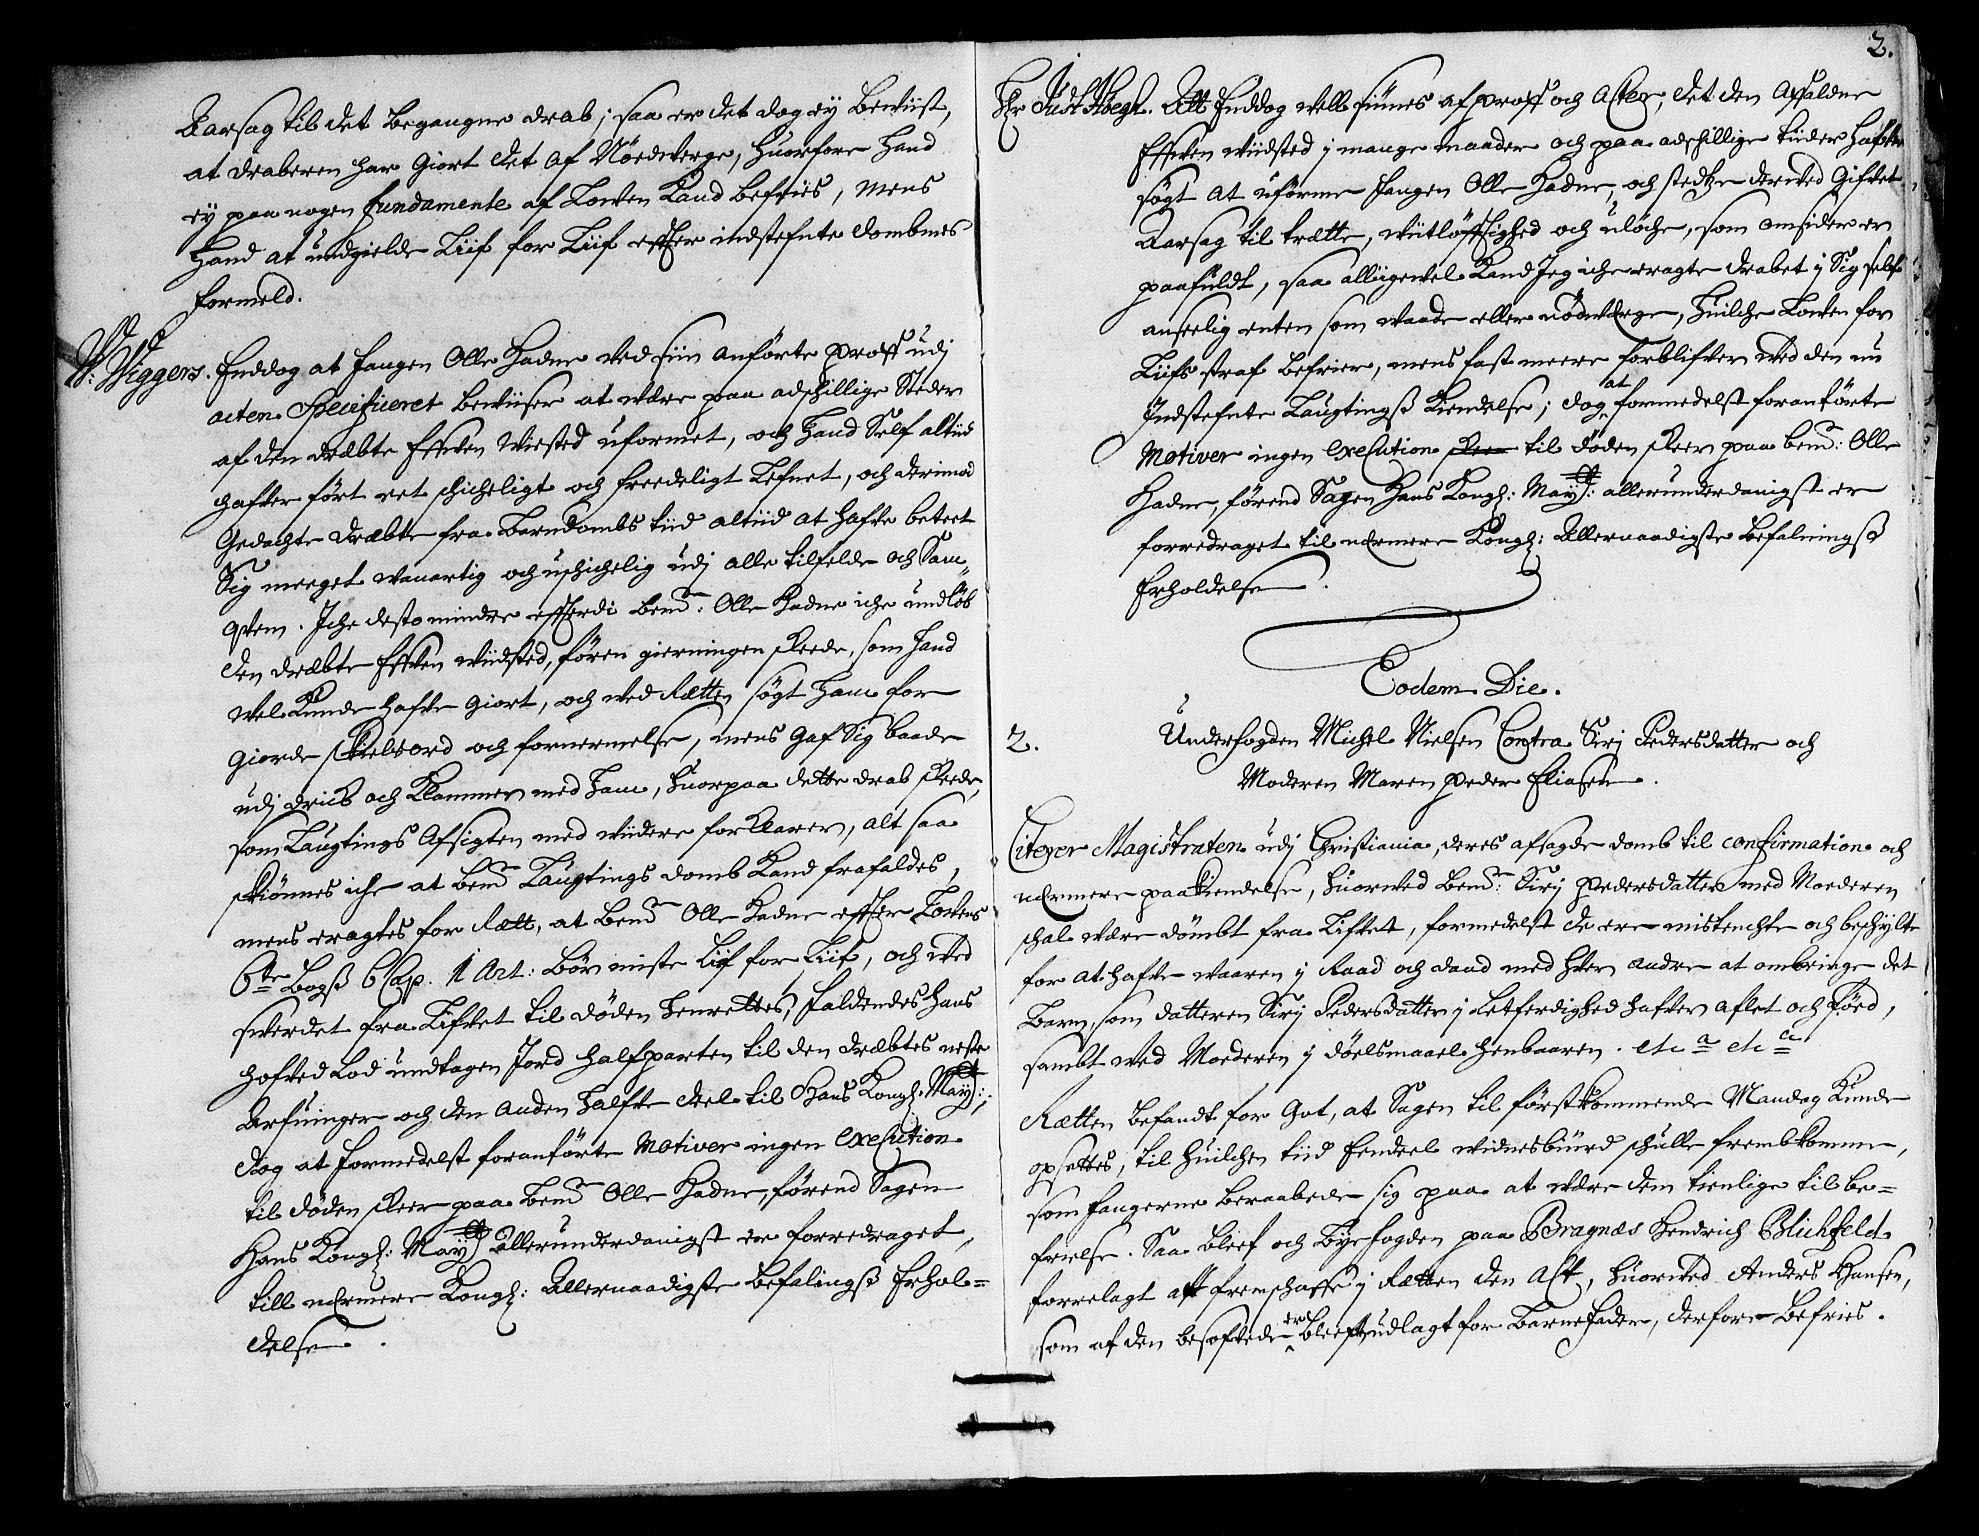 Aarsag til det begangne drab; saa er det dog ey beviist,
at draberen har giort det af Nödverge, huorfore hand
ey paa nogen fundamente af Lowen kand befries, mens
hand at undgielde Liif for Liif effter indstefnte dombmes
formeld.
W: Wiggers. Enddog at fangen Olle Hadne ved siin anförte proff udj
acten Specificeret beviiser at være paa adschillige Steder
af den dræbte Effven Wiisted uformet, och hand Self altiid
hafver fört ret schicheligt och freedeligt Lefnet, och derimod
Gedachte dræbte fra Barndombs tiid altiid at hafve beteet
Sig meeget wanartig och uschichelig udj alle tilfelde och Sam-
qvem. Iche desto mindre effterdi bemt: Olle Hadne iche undlöb
den dræbte Effven Wiidsted, förend gierningen skeede, som hand
vel kunde hafve giort, och ved Rætten sögt ham for
giorde skields ord och fornermelse, mens gaf Sig baade
udj drick och klammer med ham, huorpaa dette drab skeede,
som Laugtings Afsigten med viidere forklarer, alt saa
skiönnes iche at bemt Laugtings domb kand frafaldes,
mens eragtes for Rætt, at bemt Olle Hadne effter Lowens
6te Bogs 6 Cap. 1 Art: bör miste Liif for Liif, och ved
sverdet fra Lifvet til döden henrettes, faldendes hans
hofved Lod undtagen Jord halfparten til den dræbtes neste
Arfvinger och den anden halfve deel til Hans Kongl: Mayt:;
dog at formedelst foranförte Motiver ingen execution
til döden skeer paa bemt Olle Hadne, förend Sagen
Hans Kongl: Mayt allerunderdanigst er forredraget,
till nermere Kongl: Allernaadigste befalings Erhol-
delse.
2.
Hr Just Höegh. Att Enddog vell fiinnes af proff och Acter, det den afdalne
Effven Wiidsted j mange maader och paa adschillige tiider hafver
sögt at uforme fangen Olle Hadne, och stedtze derved Giftvet
Aarsag til trætte, viitlöfftighed och ulöche, som omsider er
paafuldt, saa alliigevel kand Jeg iche eragte drabet j Sig self
anseelig enten som vaade eller nödwerge, huilche Lowen for
Liifs straf befrier, mens fast meere forblifver ved den nu
Indstefnte Laugtings kiendelse; dog at formedelst foranförte
Motiver ingen execution til döden skeer paa bemt: Olle
Hadne, förend Sagen Hans Kongl: Mayt: allerunderdanigst er
forredraget til nermere Kongl: Allernaadigste befalnings
Erholdelse.
Eodem Die.
2. Underfogden Michel Nielsen Contra Sirj Pedersdatter och
Moderen Maren Peder Eliasen.
Citerer Magistraten udj Christiania, deres afsagde domb til confirmation och
nermere paakiendelse, huorved bemt: Sirj Pedersdatter med Moederen
schal være dömbt fra Lifvet, formedelst de ere mistenchte och beschylte
for at hafve vaaren j Raad och daad med hver andre at ombringe det
Barn, som datteren Sirj Pedersdatter j Letferdighed hafver aflet och föed,
sambt ved Moederen j döelsmaael henbaaren. etc a etc a
Rætten befandt for Got, at Sagen til förstkommende Mandag kunde
opsettes, til huilchen tiid Eendeel vidnesbiurd schulle frembkomme,
som fangerne beraabede sig paa at være dem tienlige til be-
frielse. Saa bleef och Byefogden paa Bragnæs Hendrich Blichfeldt
forrelagt att fremschaffe j Rætten den Act, huorved Anders Hansen,
som af den besofvede er bleeft udlagt for Barnefader, derfore befries.